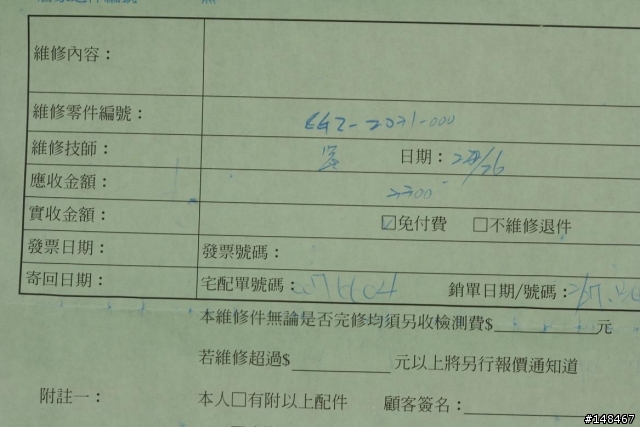 維修內容：
維修零件編號：
維修技師： 日期：
應收金額： 2300
實收金額： ☑免付費 □不維修退件
發票日期： 發票號碼：
寄回日期： 宅配單號碼： 銷單日期/號碼：
本維修件無論是否完修均須另收檢測費$ 元
若維修超過$ 元以上將另行報價通知道
附註一： 本人□有附以上配件 顧客簽名：
#148467